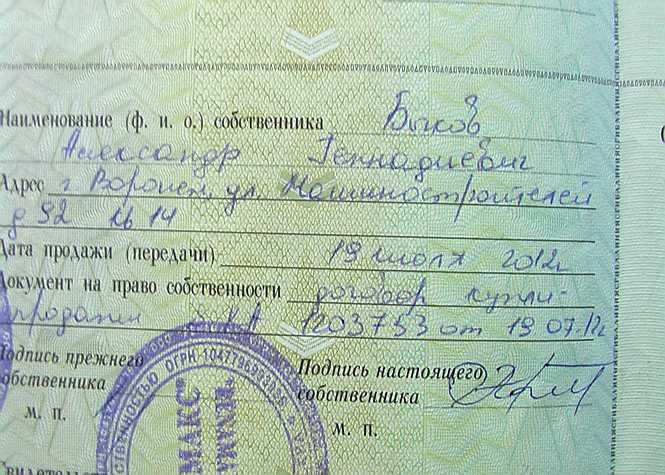 Наименование (ф. и. о.) собственника Быков
Александр Геннадиевич
Адрес г Воронеж, ул. Машиностроителей
д 92 кв 14
Дата продажи (передачи) 19 июля 2012г
Документ на право собственности договор купли-
продажи КА 1203753 от 19.07.12г
Подпись прежнего собственника
Подпись настоящего собственника
м. п.
м. п.
ОГРН
МАКС"